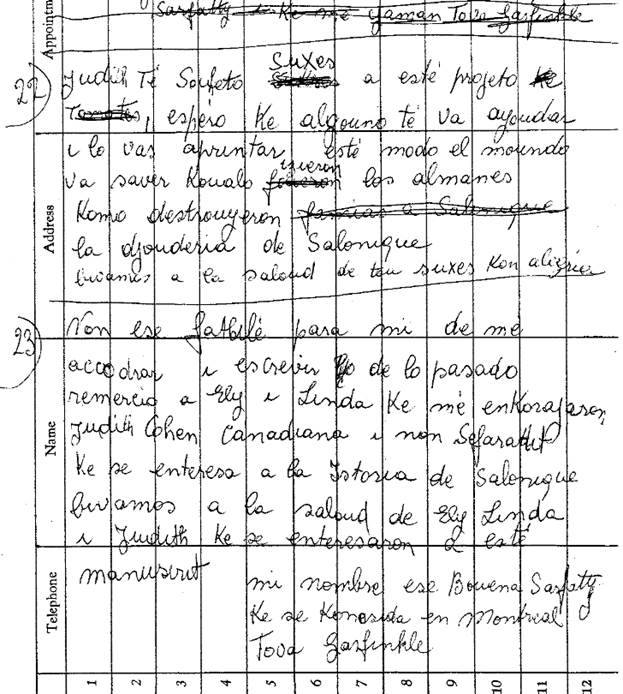 Appointm
Sarfatty i Ke me yaman Tova Garfinkle
22)
Judith Te Soufeto suxes a esté projeto Ke
Tomates, espéro Ke algouno té va ayoudar
i lo vas aprintar, esté modo el moundo
va saver Koualo izieron los almanes
Komo destrouyeron familias a Salonique
la djouderia de Salonique
Address
buvamos a la saloud de tou suxes Kon alegria
23)
Non ese fatbilé para mi de me
accodrar i escrevir yo de lo pasado
remercio a Ely i Linda Ke mé enkorajaron,
Judith Cohen Canadiana i non Sefaradit
Ke se enteresa a la Istoria de Salonique
buvamos a la saloud de Ely Linda
i Judith Ke se enteresaron a esté
manuscrit
Name
mi nombre ese Bouena Sarfatty
Ke se Konesida en Montreal
Tova Garfinkle
Telephone
1 2 3 4 5 6 7 8 9 10 11 12